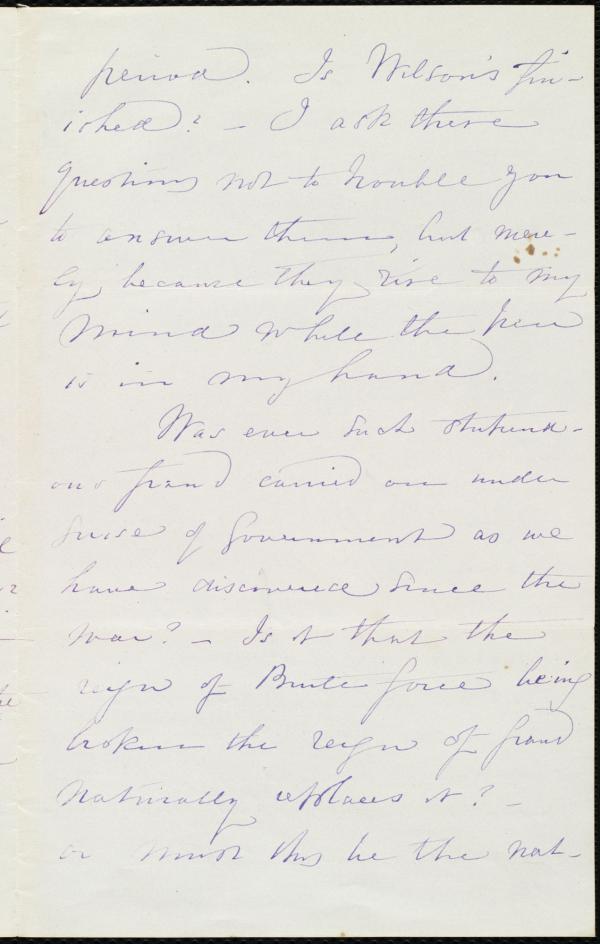 period. Is Wilson's fin-
ished? – I ask these
questions not to trouble you
to answer them, but mere-
ly, because they rise to my
mind while the pen
is in my hand.
Was ever such stupend-
ous fraud carried on under
guise of government as we
have discovered since the
war? – Is it that the
reign of Brute force being
broken the reign of fraud
naturally replaces it? –
or must this be the nat-